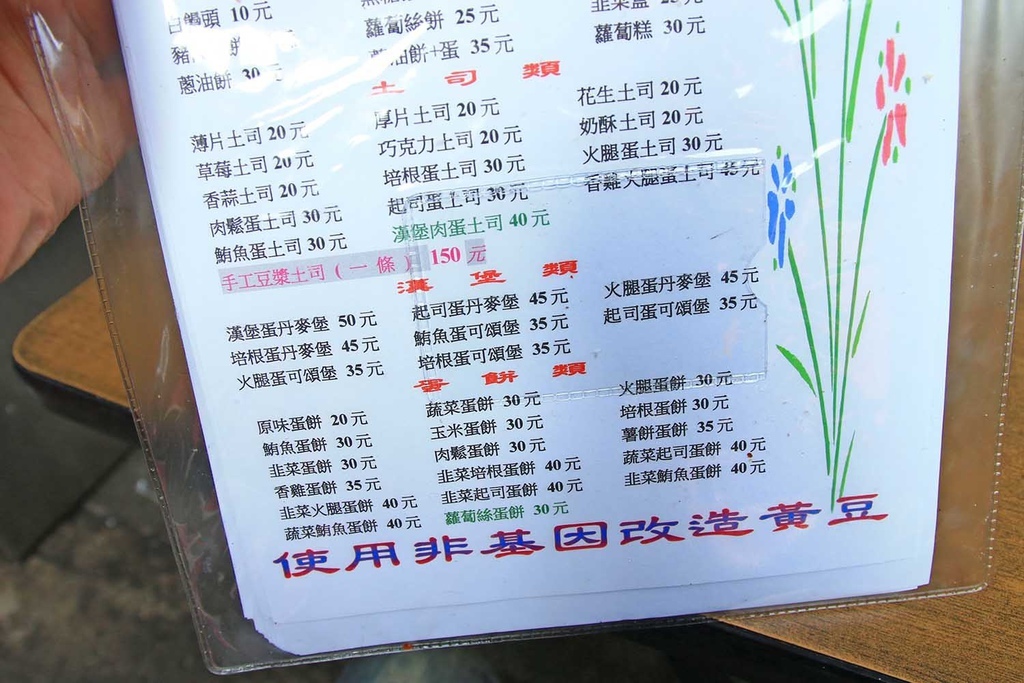 白饅頭 10元
蘿蔔絲餅 25元
蘿蔔糕 30元
蔥油餅 30元
油餅+蛋 35元
土司類
薄片土司 20元
厚片土司 20元
花生土司 20元
草莓土司 20元
巧克力土司 20元
奶酥土司 20元
香蒜土司 20元
培根蛋土司 30元
火腿蛋土司 30元
肉鬆蛋土司 30元
起司蛋土司 30元
香雞火腿蛋土司 45元
鮪魚蛋土司 30元
漢堡肉蛋土司 40元
手工豆漿土司(一條) 150元
漢堡類
漢堡蛋丹麥堡 50元
起司蛋丹麥堡 45元
火腿蛋丹麥堡 45元
培根蛋丹麥堡 45元
鮪魚蛋可頌堡 35元
起司蛋可頌堡 35元
火腿蛋可頌堡 35元
培根蛋可頌堡 35元
蛋餅類
原味蛋餅 20元
蔬菜蛋餅 30元
火腿蛋餅 30元
鮪魚蛋餅 30元
玉米蛋餅 30元
培根蛋餅 30元
韭菜蛋餅 30元
肉鬆蛋餅 30元
薯餅蛋餅 35元
香雞蛋餅 35元
韭菜培根蛋餅 40元
蔬菜起司蛋餅 40元
韭菜火腿蛋餅 40元
韭菜起司蛋餅 40元
韭菜鮪魚蛋餅 40元
蔬菜鮪魚蛋餅 40元
蘿蔔絲蛋餅 30元
使用非基因改造黃豆